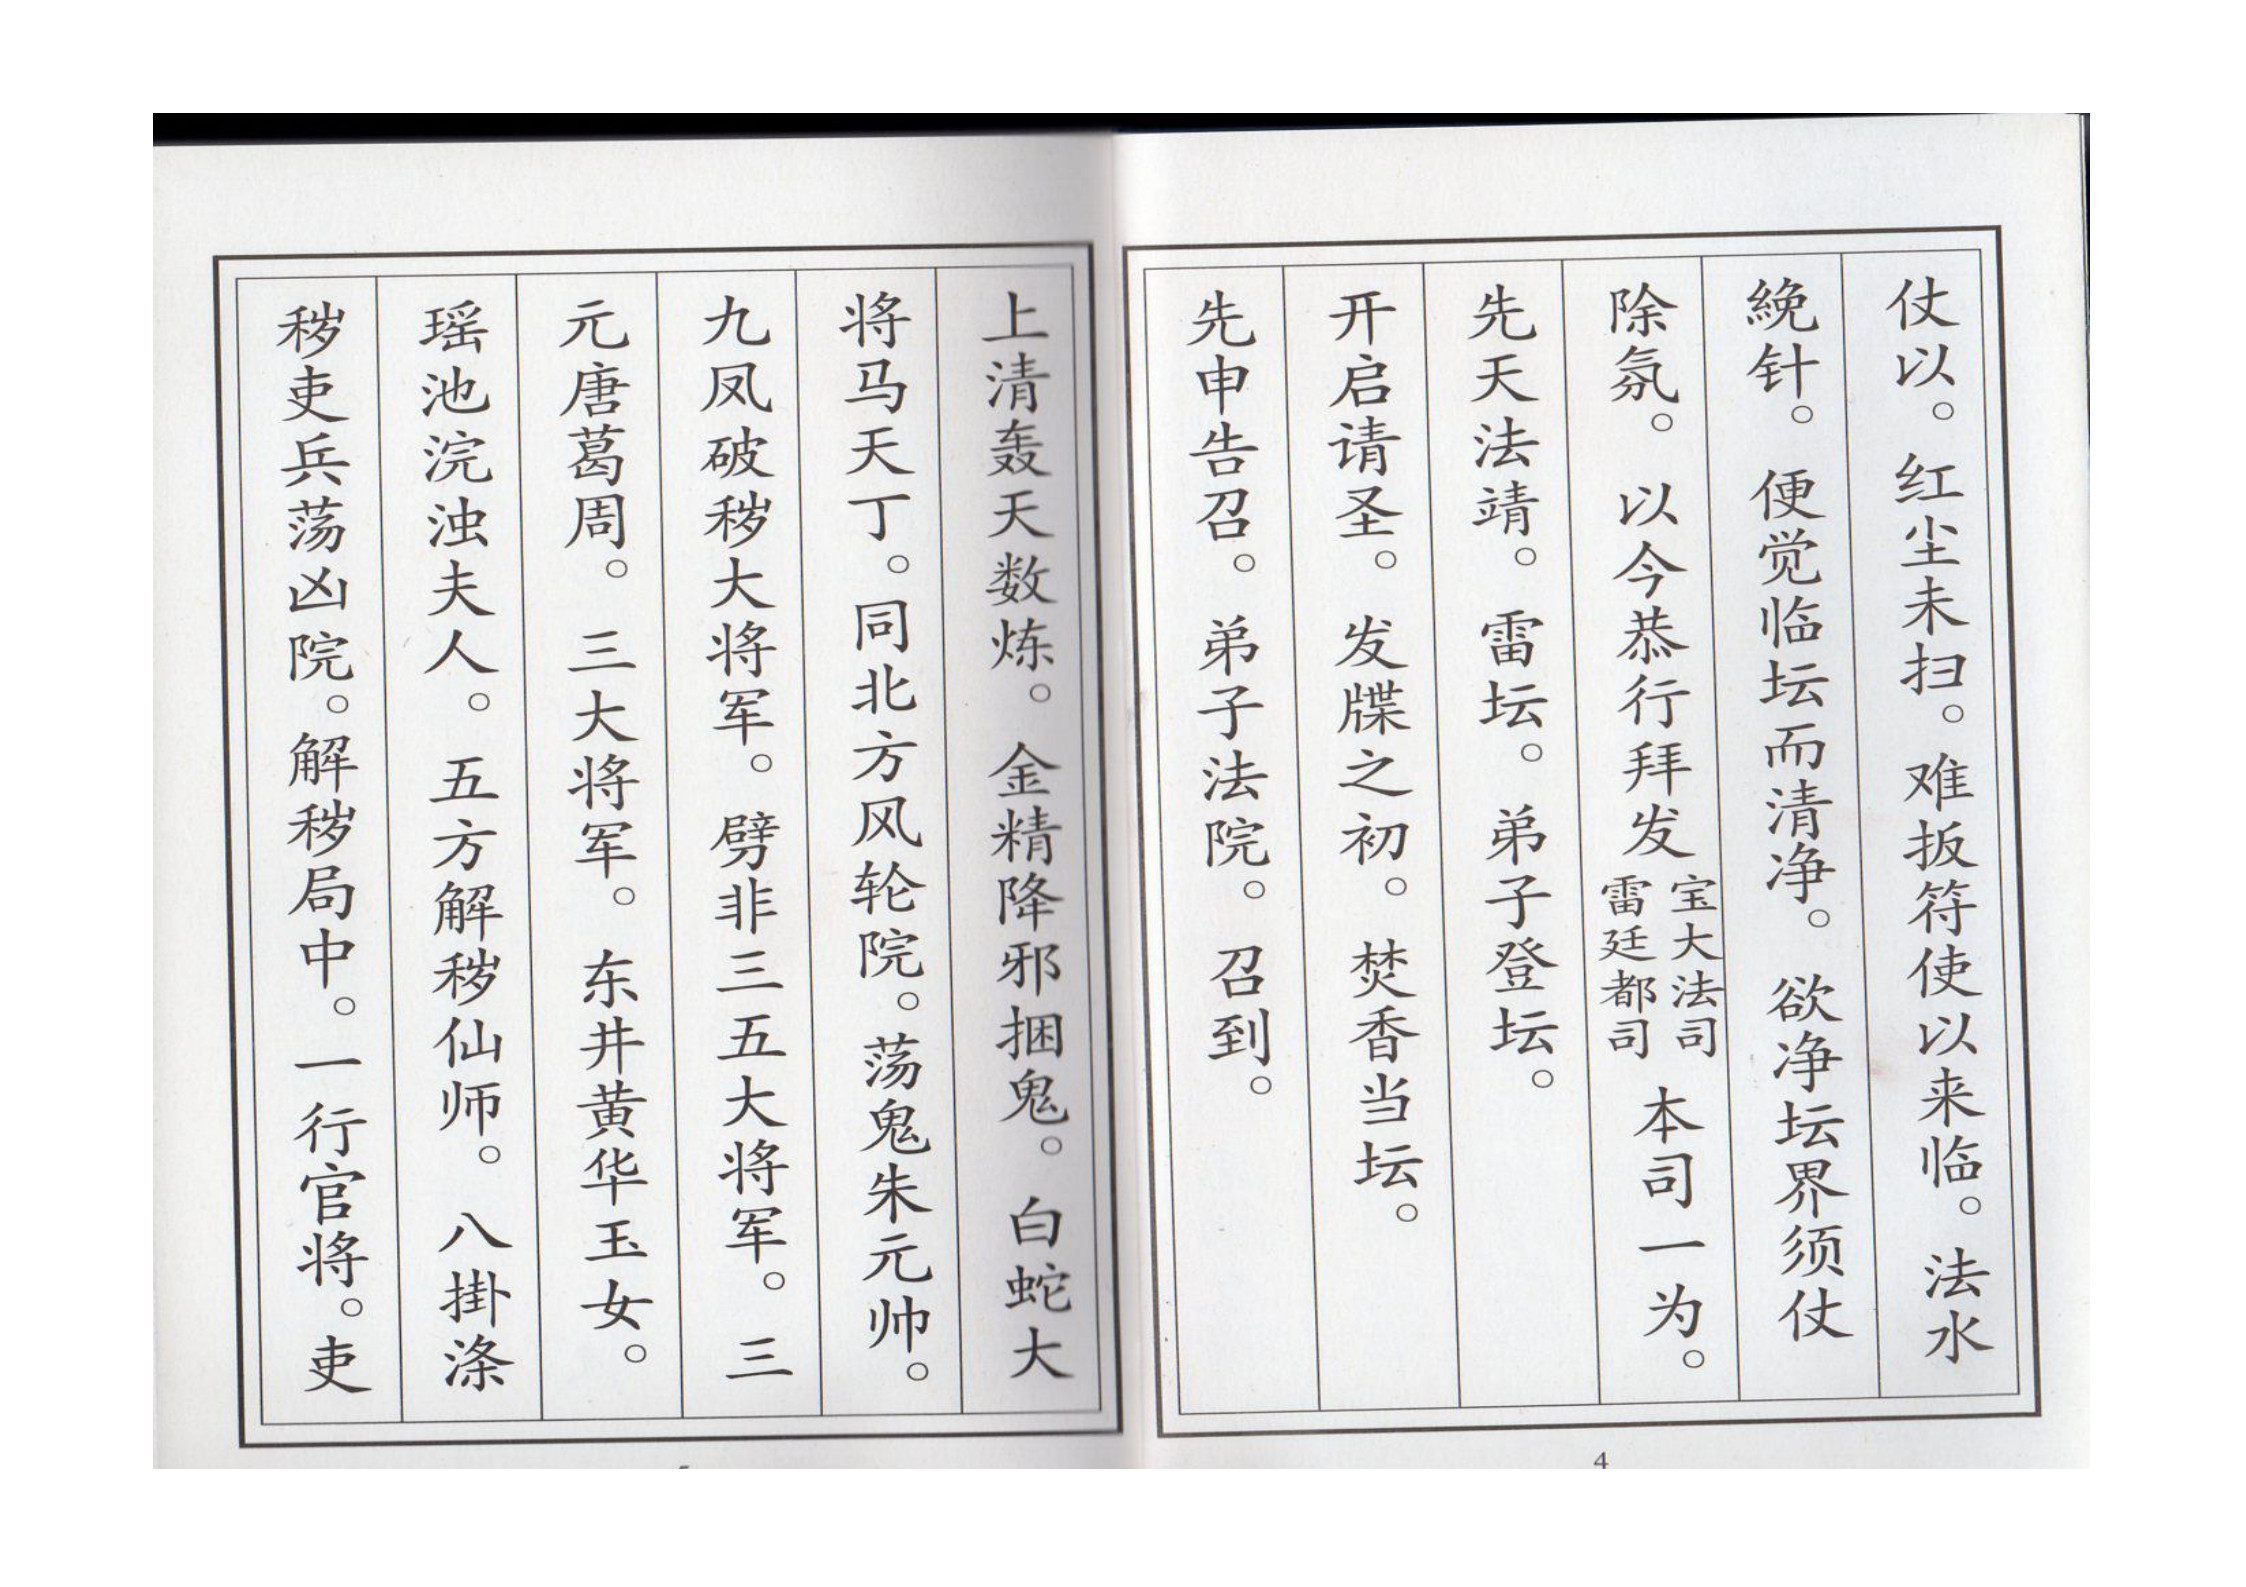 仗以。红尘未扫。难扳符使以来临。法水
絻针。便觉临坛而清净。欲净坛界须仗
除氛。以今恭行拜发宝大法司雷廷都司本司一为。
先天法靖。雷坛。弟子登坛。
开启请圣。发牒之初。焚香当坛。
先申告召。弟子法院。召到。
4
上清轰天数炼。金精降邪捆鬼。白蛇大
将马天丁。同北方风轮院。荡鬼朱元帅。
九凤破秽大将军。劈非三五大将军。三
元唐葛周。三大将军。东井黄华玉女。
瑶池浣浊夫人。五方解秽仙师。八掛涤
秽吏兵荡凶院。解秽局中。一行官将。吏